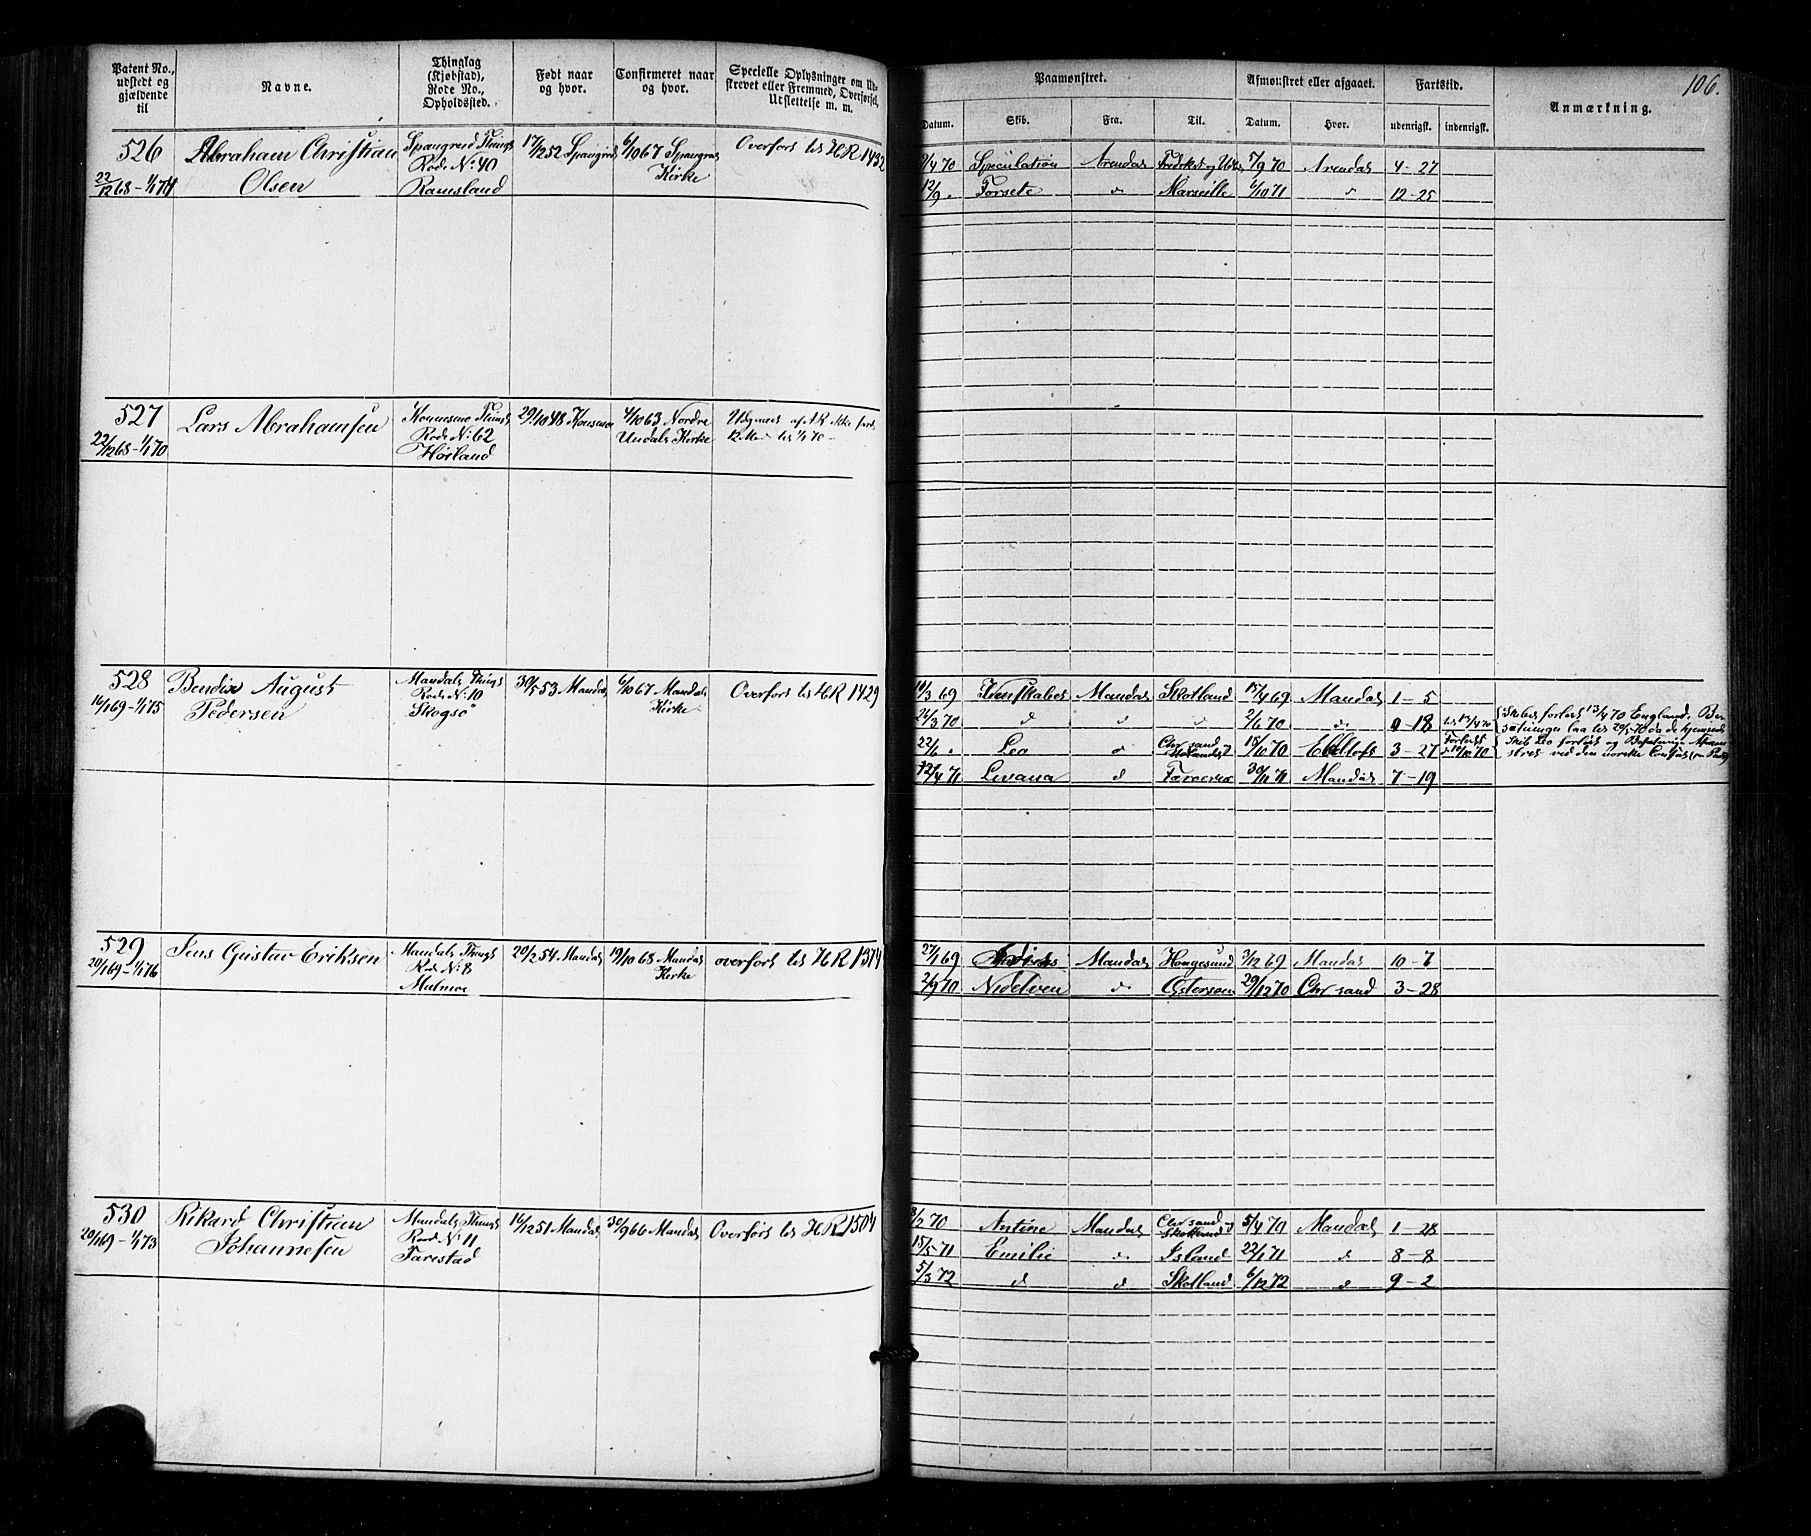 106.
Patent No., udstedt og gjældende til
Navne.
Thinglag (Kjøbstad), Rode No., Opholdssted.
Født naar og hvor.
Confirmeret naar og hvor.
Specielle Oplysninger om Udskrevet eller Fremmed, Overførsel, Udslettelse m. m.
Paamønstret.
Afmønstret eller afgaaet.
Fartstid.
Anmærkning.
Datum. Skib. Fra. Til. Datum. Hvor. udenrigsk. indenrigsk.
526 Abraham Christian
Olsen
22/12 68 - 1/1 74
Spangreid Things
Rode No: 40
Ramsland
17/2 52 Spangreid
6/10 67 Spangreid
Kirke
Overført til HR 1432
9/4 70 Speculation Arendal 7/9 70 Arendal 4-27
12/9 " Forsete d Marseille 6/10 71 d 12-25
527 Lars Abrahamsen
22/12 68 - 1/1 70
Konnesmo Things
Rode No: 62
Høiland
29/10 48 Konsmo
4/10 63 Nordre
Undals Kirke
528 Bendix August
Pedersen
16/1 69 - 1/1 75
Mandals Things
Rode No: 10
Skogsö
30/5 53 Mandal
6/10 67 Mandals
Kirke
Overført til HR 1429
Mandal Skotland 15/4 69 Mandal 1-5
24/3 70 d 2/6 70 d 0-18
22/6 " Leo d Chr sand 15/10 70 Ebeltoft 3-27
12/4 71 Livana d Færøerne 30/11 71 Mandal 7-19
529 Jens Gustav Eriksen
20/1 69 - 1/1 76
Mandals Things
Rode No: 8
Malmøe
20/2 54 Mandal
19/10 68 Mandal
Kirke
overført til HR 1374
27/1 69 Mandal Haugesund 3/12 69 Mandal 10-7
2/9 70 Nidelven d Østersøen 29/12 70 Chr sand 3-28
530 Rikard Christian
Johannesen
20/1 69 - 1/1 73
Mandals Things
Rode No: 11
Farestad
16/2 51 Mandal
30/9 66 Mandal
Overført til HR 1504
Antine Mandal Chr sand & Skotland 5/4 70 Mandal 1-28
15/5 71 Emilie d Island 22/1 71 d 8-8
5/3 72 d d Skotland 6/12 72 d 9-2